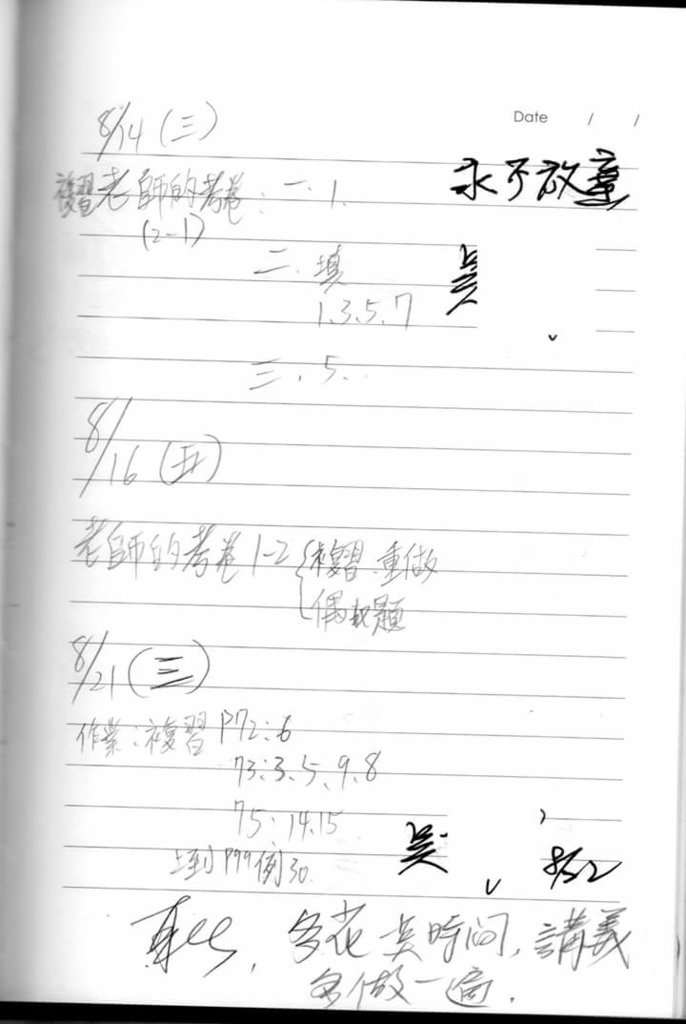 Date / /
8/14 (三)
永不放棄
複習老師的考卷:一.1.
(2-1)
二.填
吳
1.3.5.7
三.5..
8/16 (五)
老師的考卷1-2{複習.重做
偶數題
8/21 (三)
作業:複習 P72:6
73:3.5.9.8
75:14.15
上到P99例30.
吳
多花 時間,講義
多做一遍.